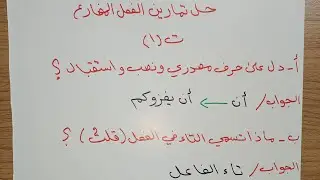 حل تمارين الفعل المضارع
ت (١)
أ - دل على حرف مصدري ونصب واستقبال ؟
الجواب / أن ← أن يغزوكم
ب - ماذا تسمي التاء في الفعل (قلت) ؟
الجواب / تاء الفاعل